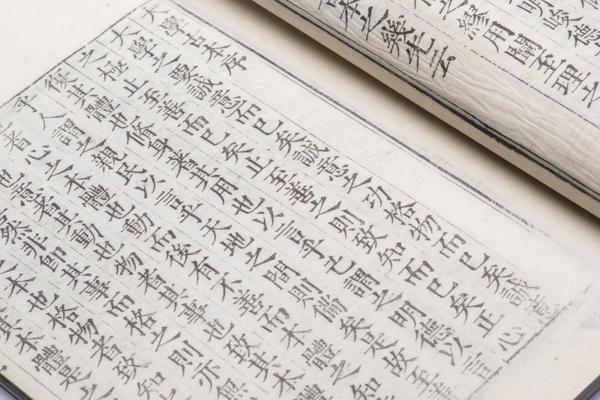 明峻德
用闡至理之
本之幾
大學古本序
大學之要誠意而已矣誠意之功格物而已矣誠意
之極止至善而已矣止至善之則致知而已矣正心
復其體也脩身者其用也以言乎己謂之明德以言
乎人謂之親民以言乎天地之間則備矣是故至善
者心之本體也動而後有不善而本體之知
也意者其動也物者其事也致其本體
然非即其事而格之則亦無
之本也格物者致知
其本體是之